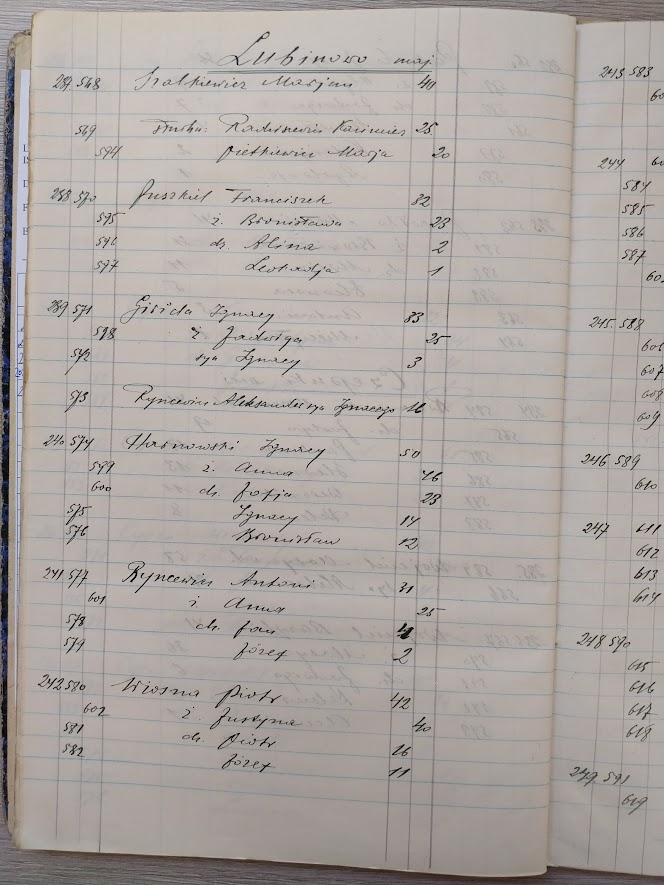 Lubinowo maj
237 568 Szalkiewicz Marjan 40
569 Radziewicz Kazimierz 25
594 Pietkiewicz Marja 20
238 570 Juszkiel Franciszek 32
595 ż. Bronisława 23
596 dz. Alina 2
597 Leokadja 1
239 571 Ignacy 33
598 ż Jadwiga 25
572 syn Ignacy 3
573 Ryncewicz Aleksander syn Ignacego 16
240 574 Ignacy 50
599 ż. Anna 46
600 dz. Zofja 23
575 Ignacy 14
576 Bronisław 12
241 577 Ryncewicz Antoni 31
601 ż Anna 25
578 dz. Jan 4
579 Józef 2
242 580 Wiosna Piotr 42
602 ż. Justyna 40
581 dz. Piotr 16
582 Józef 11
243 583
244
584
585
586
587
245 588
606
607
608
609
246 589
610
247 611
612
613
614
248 590
615
616
617
618
249 591
619